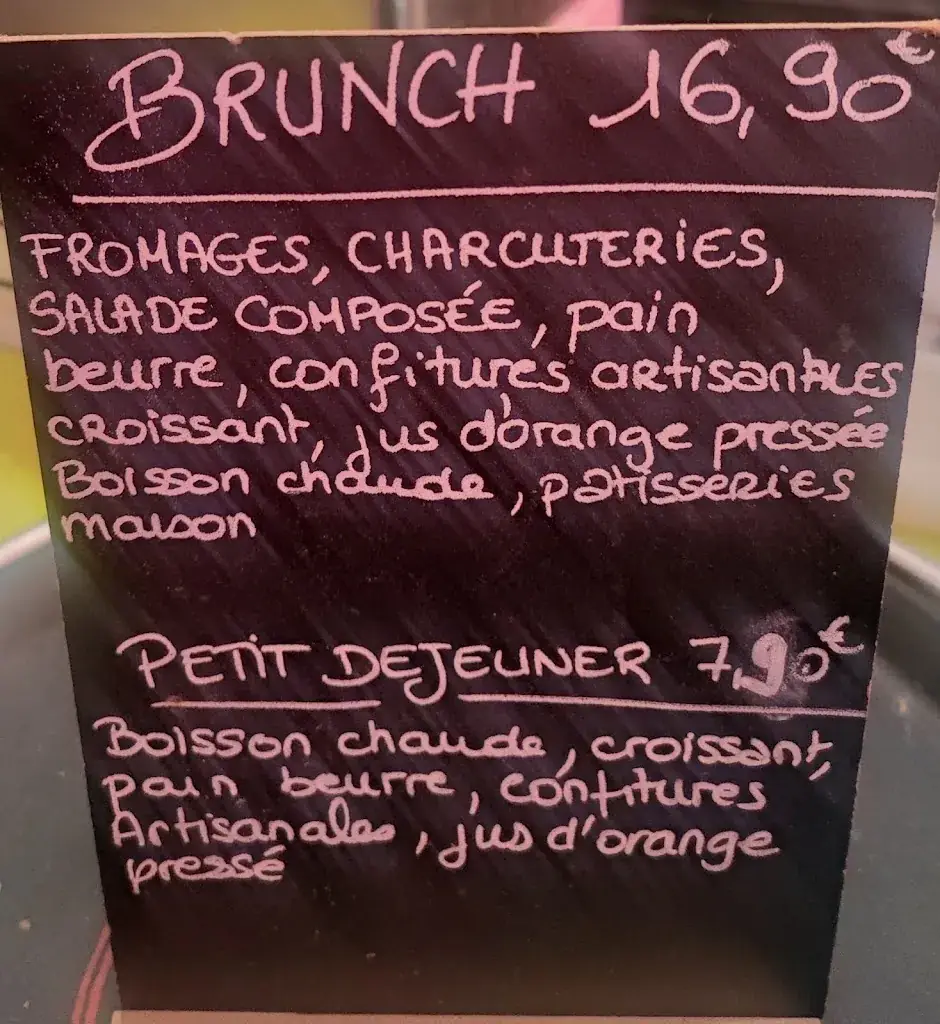 BRUNCH 16,90€
FROMAGES, CHARCUTERIES,
SALADE COMPOSÉE, pain
beurre, confitures artisanales
croissant, jus d'orange pressée
Boisson chaude, patisseries
maison
PETIT DEJEUNER 7,90€
Boisson chaude, croissant,
pain beurre, confitures
Artisanales, jus d'orange
pressé